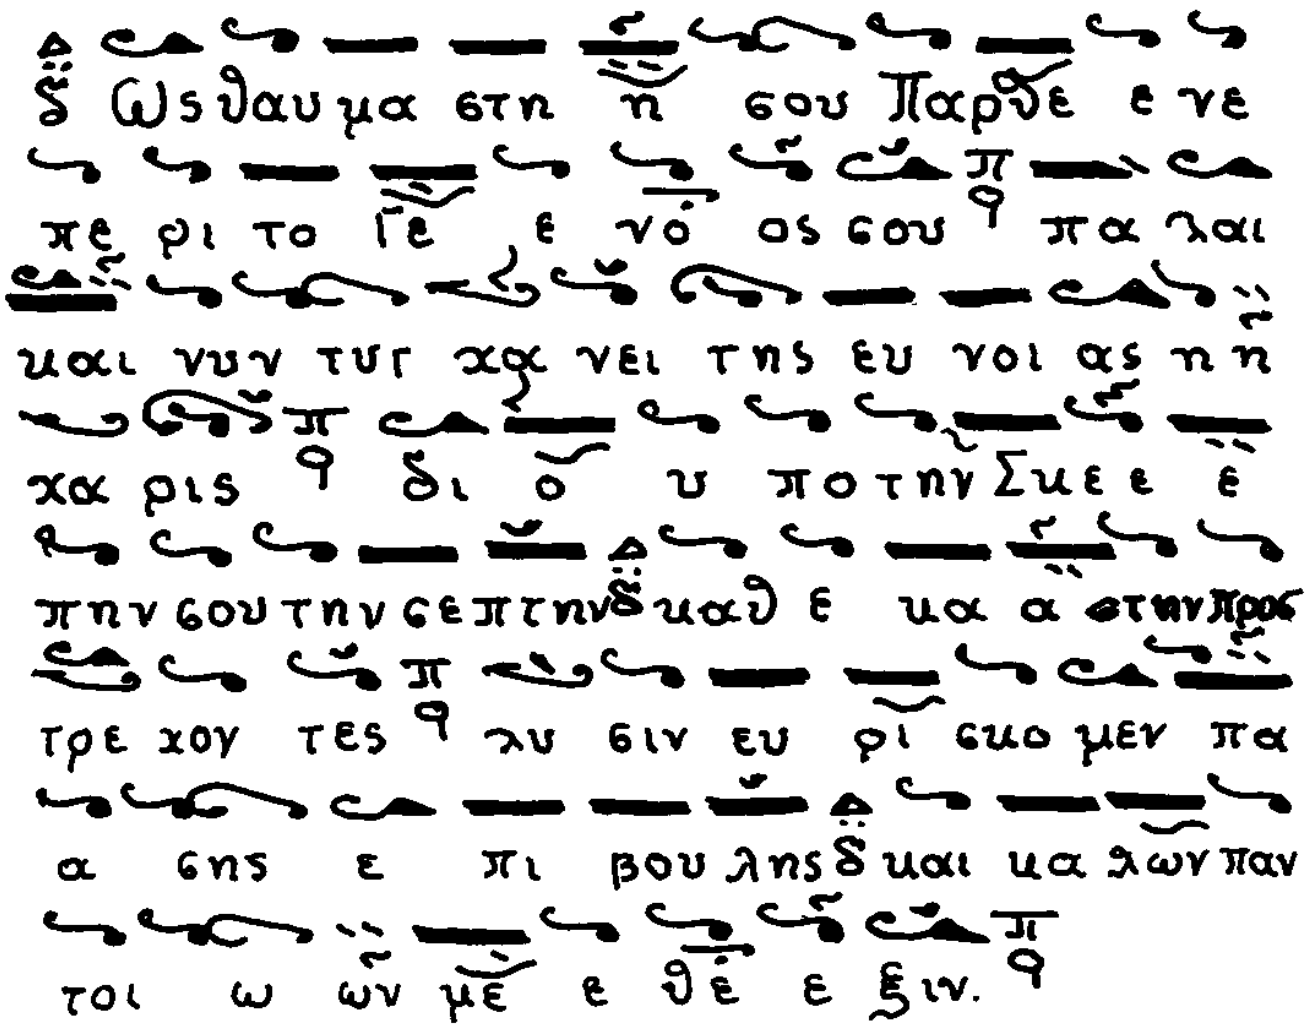 δ Ως θαυ μα στη η σου Παρθε ε νε
πε ρι το Γε ε νο ος σου π ᾳ πα λαι
και νυν τυγ χα νει της ευ νοι ας η η
χα ρις π ᾳ δι ο υ πο την Σκε ε ε
πην σου την σε πτην δ καθ ε κα α στην προσ
τρε χον τες π ᾳ λυ σιν ευ ρι σκο μεν πα
α σης ε πι βου λης δ και κα λων παν
τοι ω ων με ε θε ε ξιν. π ᾳ